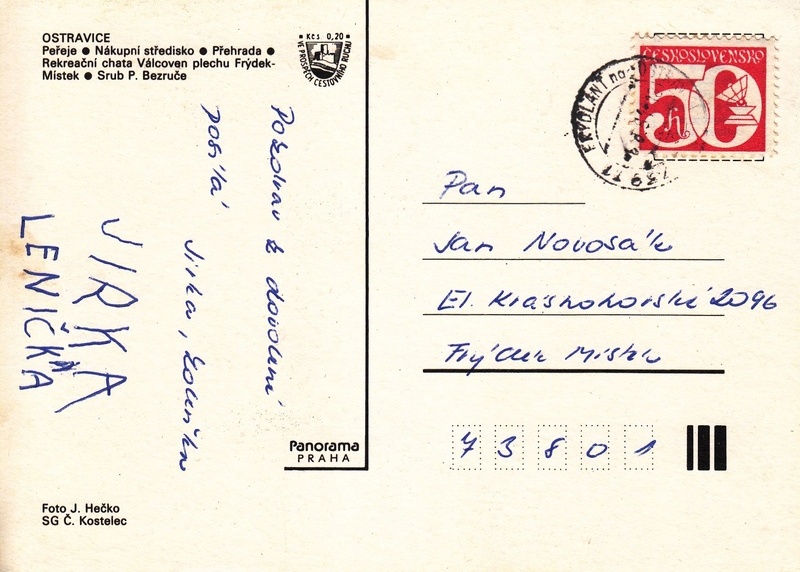 OSTRAVICE
Peřeje ● Nákupní středisko ● Přehrada ●
Rekreační chata Válcoven plechu Frýdek-
Místek ● Srub P. Bezruče
Kčs 0,20
VE PROSPĚCH CESTOVNÍHO RUCHU
Pozdrav z dovolené
posílá
Jirka, Lenička
JIRKA
LENIČKA
Panorama
PRAHA
Foto J. Hečko
SG Č. Kostelec
ČESKOSLOVENSKO
50
FRÝDLANT nad
739 11
Pan
Jan Novosák
El. Krásnohorské 2096
Frýdek Místek
73801